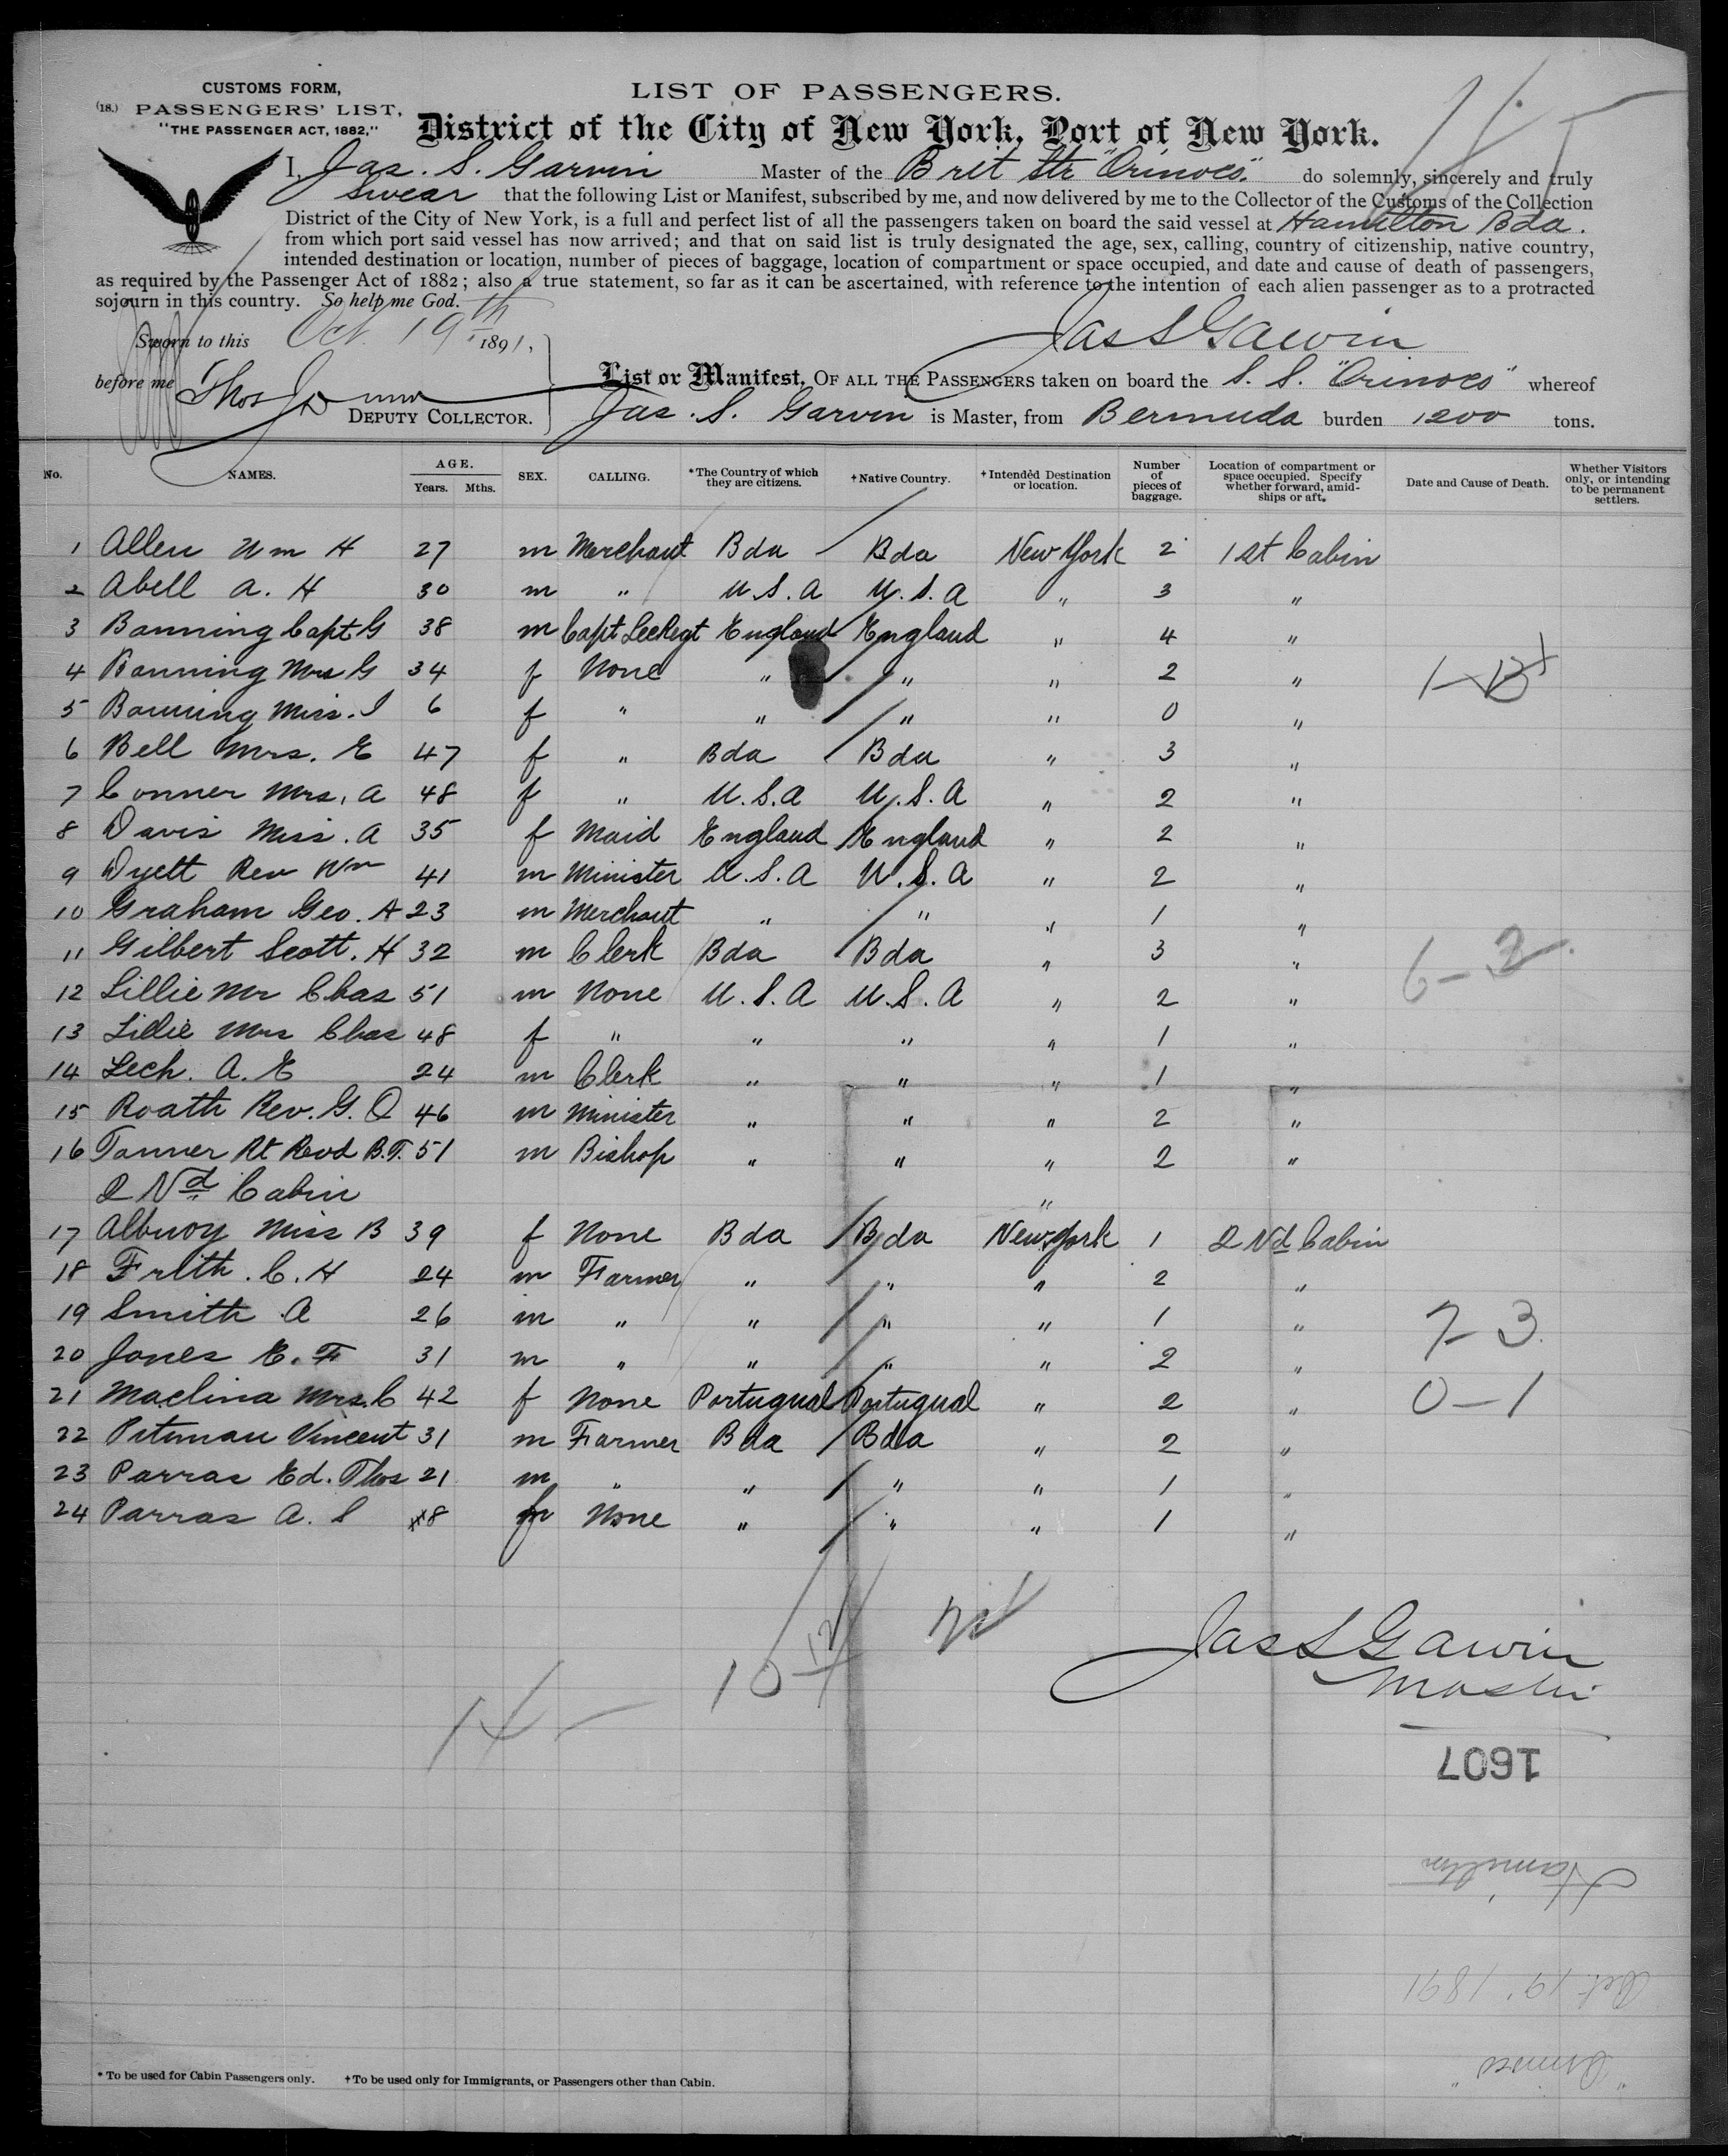 CUSTOMS FORM,
(18.) PASSENGERS' LIST,
"THE PASSENGER ACT, 1882,"
LIST OF PASSENGERS.
District of the City of New York, Port of New York.
I, Jas. S. Garvin Master of the Brit Str "Orinoco" do solemnly, sincerely and truly
swear that the following List or Manifest, subscribed by me, and now delivered by me to the Collector of the Customs of the Collection
District of the City of New York, is a full and perfect list of all the passengers taken on board the said vessel at Hamilton Bda.
from which port said vessel has now arrived; and that on said list is truly designated the age, sex, calling, country of citizenship, native country,
intended destination or location, number of pieces of baggage, location of compartment or space occupied, and date and cause of death of passengers,
as required by the Passenger Act of 1882; also a true statement, so far as it can be ascertained, with reference to the intention of each alien passenger as to a protracted
sojourn in this country. So help me God.
Sworn to this Oct. 19th 1891,
Jas S Garvin
before me Thos Dunn
DEPUTY COLLECTOR.
List or Manifest, OF ALL THE PASSENGERS taken on board the S. S. "Orinoco" whereof
Jas. S. Garvin is Master, from Bermuda burden 1200 tons.
No. NAMES. AGE. Years. Mths. SEX. CALLING. *The Country of which they are citizens. †Native Country. †Intended Destination or location. Number of pieces of baggage. Location of compartment or space occupied. Specify whether forward, amidships or aft. Date and Cause of Death. Whether Visitors only, or intending to be permanent settlers.
1 Allen Wm H 27 m Merchant Bda Bda New York 2 1st Cabin
2 Abell A. H 30 m " U.S.A U.S.A " 3 "
3 Banning Capt G 38 m Capt LeeRegt England England " 4 "
4 Banning Mrs G 34 f None " " " 2 "
5 Banning Miss. I 6 f " " " " 0 "
6 Bell Mrs. E 47 f " Bda Bda " 3 "
7 Conner Mrs. A 48 f " U.S.A U.S.A " 2 "
8 Davis Miss. A 35 f Maid England England " 2 "
9 Dyett Rev Wm 41 m Minister U.S.A U.S.A " 2 "
10 Graham Geo. A 23 m Merchant " " " 1 "
11 Gilbert Scott. H 32 m Clerk Bda Bda " 3 " 6-2
12 Lillie Mr Chas 51 m None U.S.A U.S.A " 2 "
13 Lillie Mrs Chas 48 f " " " " 1 "
14 Lech. A. E 24 m Clerk " " " 1 "
15 Roath Rev. G. O 46 m Minister " " " 2 "
16 Tanner Rt Revd B.T. 51 m Bishop " " " 2 "
2Nd Cabin "
17 Albuoy Miss B 39 f None Bda Bda New York 1 2Nd Cabin
18 Frith. C. H 24 m Farmer " " " 2 "
19 Smith A 26 m " " " " 1 " 7-3
20 Jones E. F 31 m " " " " 2 "
21 Maclina Mrs. C 42 f None Portugual Portugual " 2 " 0-1
22 Pitman Vincent 31 m Farmer Bda Bda " 2 "
23 Parras Ed. Thos 21 m " " " " 1 "
24 Parras A. S 8 f None " " " 1 "
Jas S Garvin
Master
14 -
1607
Hamilton
Oct 19, 1891
"Orinoco"
* To be used for Cabin Passengers only. †To be used only for Immigrants, or Passengers other than Cabin.